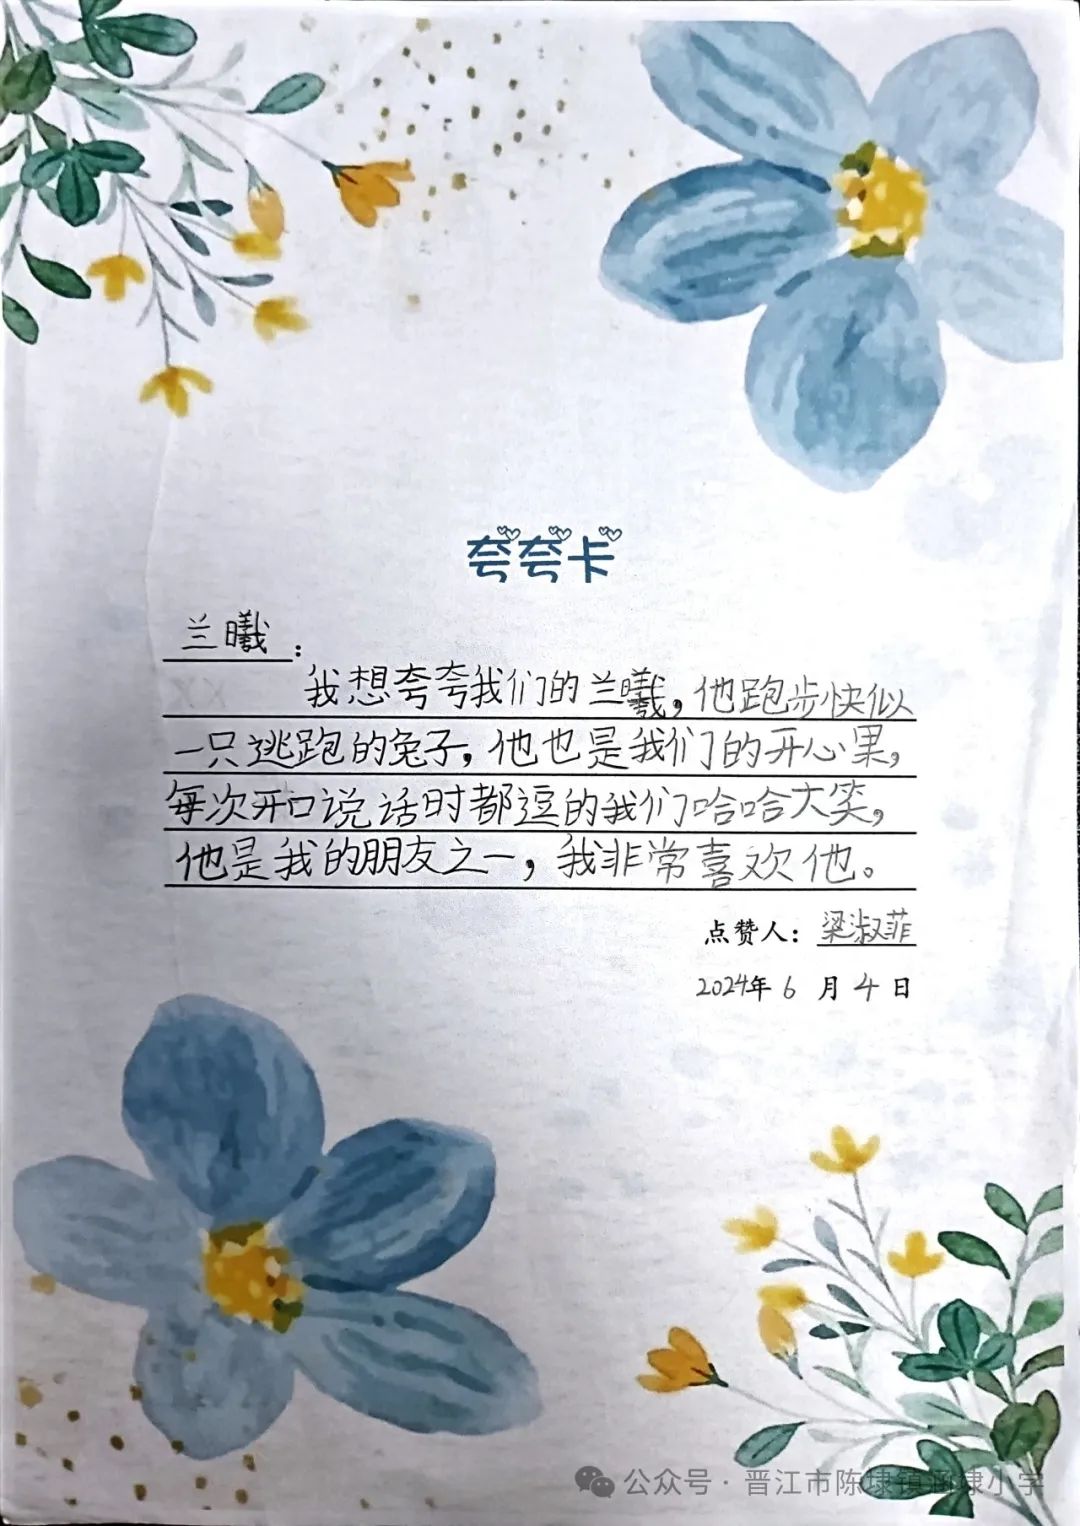 夸夸卡
兰曦：
我想夸夸我们的兰曦，他跑步快似
一只逃跑的兔子，他也是我们的开心果，
每次开口说话时都逗的我们哈哈大笑，
他是我的朋友之一，我非常喜欢他。
点赞人：梁淑菲
2024年6月4日
公众号·晋江市陈埭镇涵埭小学